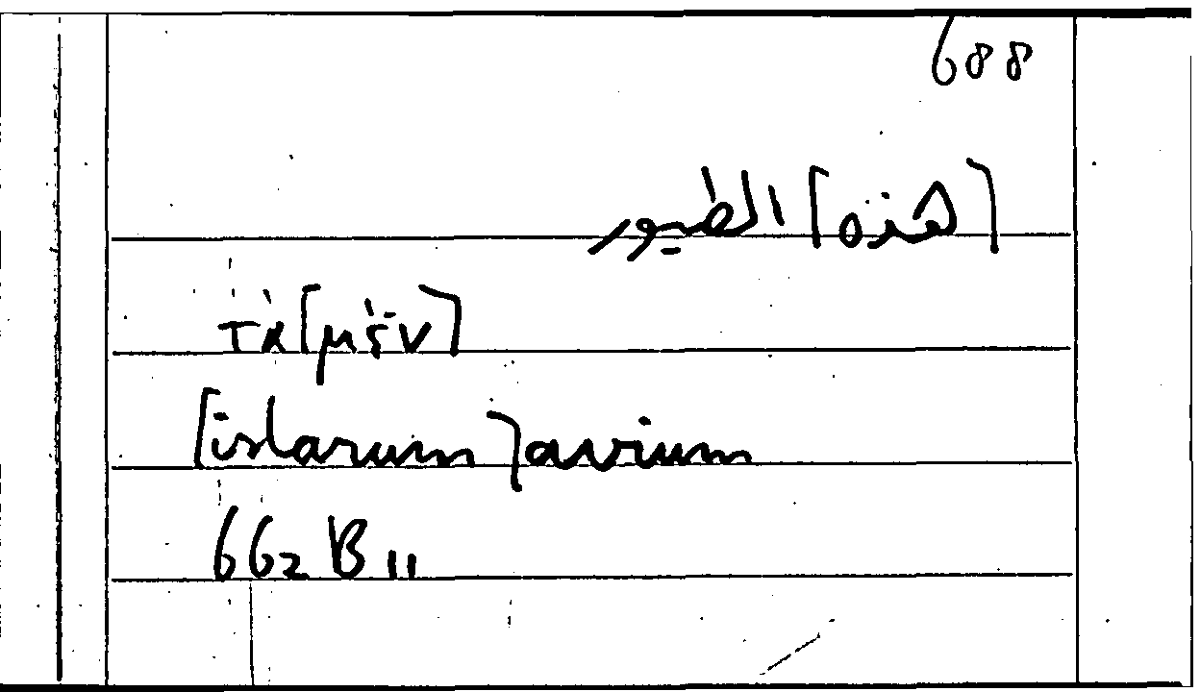 688
[هذه] الطيور
τὰ [μὲν]
[istarum] avium
662 B 11